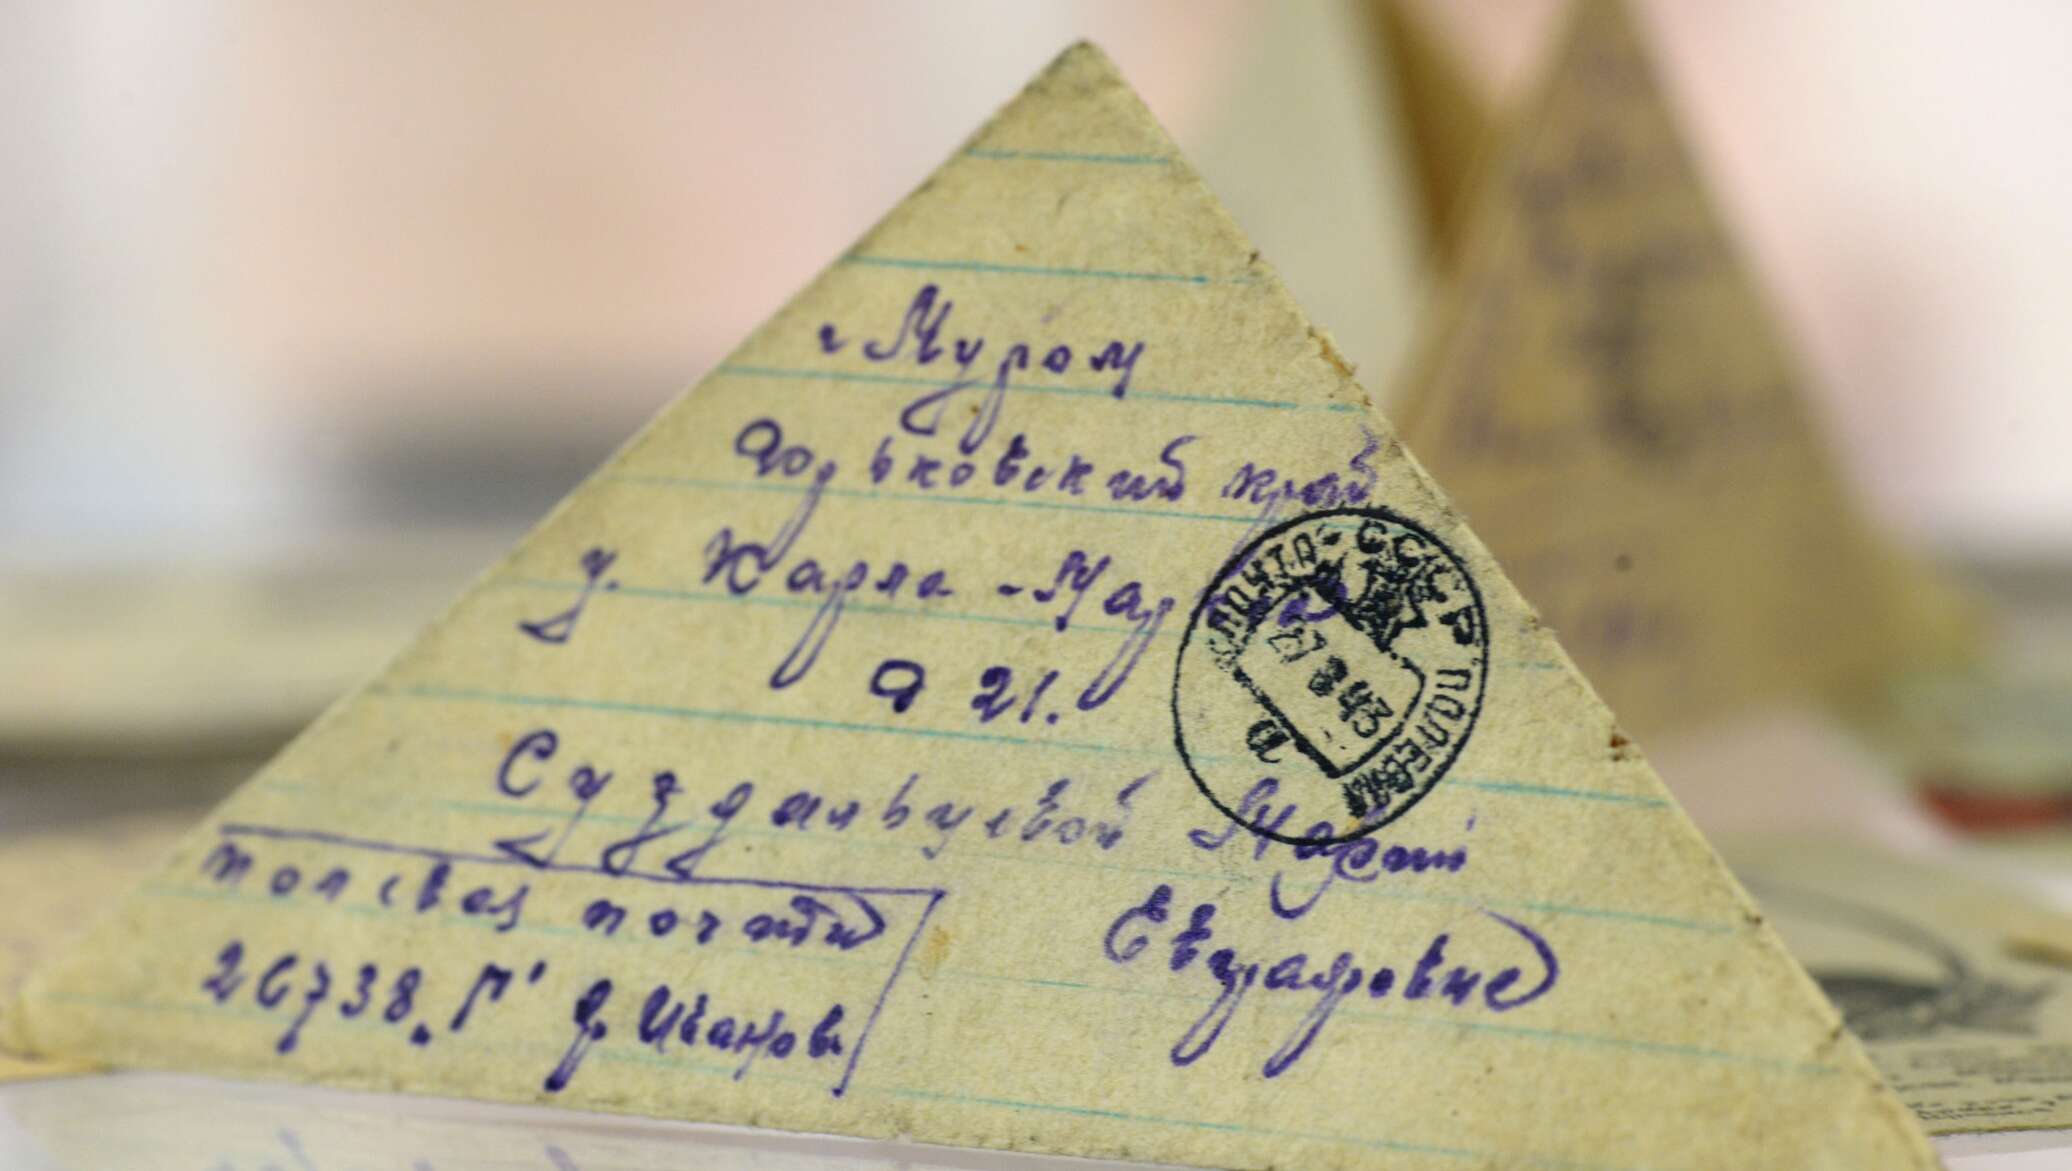 г Муром
Горьковский край
у. Карла-Маркса
д 21.
Суздальцевой Марии
Евграфовне
полевая почта
26738 "Г" Иванов
ПОЧТА-СССР ПОЛЕВАЯ
27 8 43